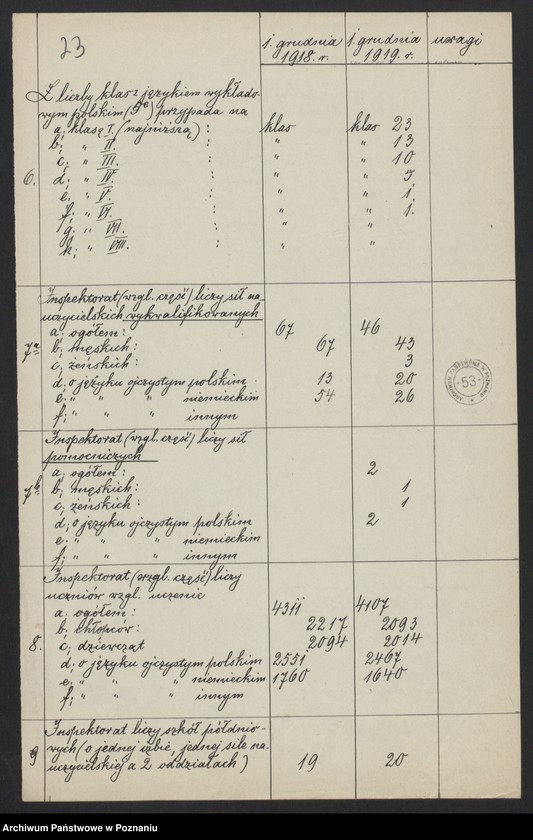 23
1. grudnia 1918. r. 1. grudnia 1919. r. uwagi
Z liczby klas z językiem wykłado-
wym polskim (5c) przypada na
a; klasę I. (najniższą) : klas klas 23
b; " II. : " " 13
c; " III. : " " 10
6. d; " IV. : " " 5
e; " V. : " " 1.
f; " VI. : " " 1.
g; " VII. : " "
h; " VIII. : " "
Inspektorat (wzgl. część) liczy sił na-
uczycielskich wykwalifikowanych
a; ogółem: 67 46
7a b; męskich: 67 43
c; żeńskich: 3
d; o języku ojczystym polskim 13 20
e; " " " niemieckim 54 26
f; " " " innym
Inspektorat (wzgl. część) liczy sił
pomocniczych
a; ogółem: 2
7b b; męskich: 1
c; żeńskich: 1
d; o języku ojczystym polskim 2
e; " " " niemieckim
f; " " " innym
Inspektorat (wzgl. część) liczy
uczniów wzgl. uczenic
a; ogółem: 4311 4107
b; chłopców: 2217 2093
8. c; dziewcząt 2094 2014
d; o języku ojczystym polskim 2551 2467
e; " " " niemieckim 1760 1640
f; " " " innym
Inspektorat liczy szkół półdnio-
wych (o jednej izbie, jednej sile na-
9 uczycielskiej a 2 oddziałach) 19 20
53
Archiwum Państwowe w Poznaniu